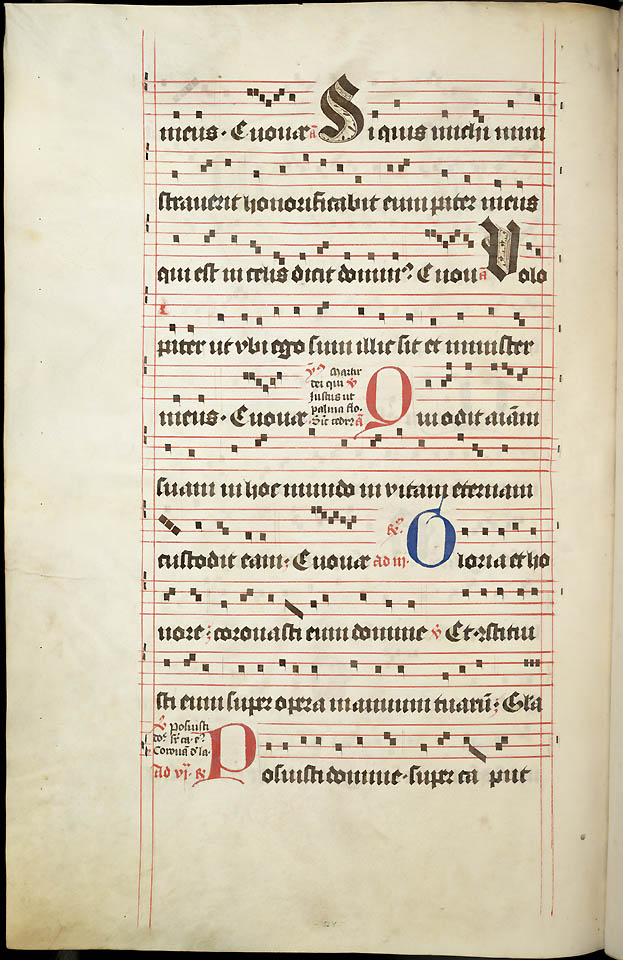 meus · Euouae a Si quis michi mini
straverit honorificabit eum pater meus
qui est in celis dicit domin9 Euoua a Volo
pater ut ubi ego sum illic sit et minister
meus · Euouae
dei qui
Justus ut
palma flo
a Qui odit aiam
suam in hoc mundo in vitam eternam
custodit eam : Euouae ad iii · Gloria et ho
nore : coronasti eum domine v Et · 9stitui
sti eum super opera manuum tuarum : Gla
v Posuisti
Corona
ad vi · Posuisti domine · super ca put